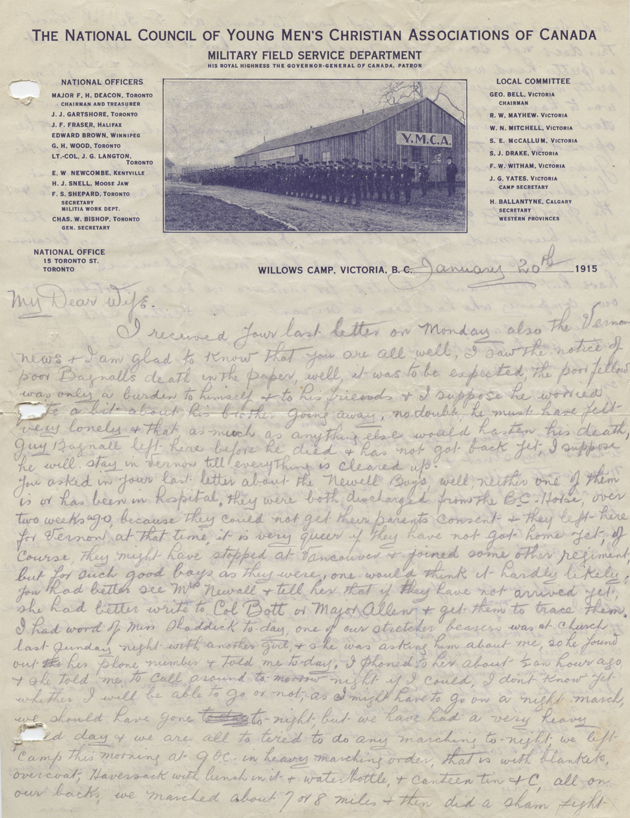 THE NATIONAL COUNCIL OF YOUNG MEN'S CHRISTIAN ASSOCIATIONS OF CANADA
MILITARY FIELD SERVICE DEPARTMENT
HIS ROYAL HIGHNESS THE GOVERNOR-GENERAL OF CANADA, PATRON
NATIONAL OFFICERS
MAJOR F. H. DEACON, TORONTO
CHAIRMAN AND TREASURER
J. J. GARTSHORE, TORONTO
J. F. FRASER, HALIFAX
EDWARD BROWN, WINNIPEG
G. H. WOOD, TORONTO
LT.-COL. J. G. LANGTON,
TORONTO
E. W. NEWCOMBE, KENTVILLE
H. J. SNELL, MOOSE JAW
F. S. SHEPARD, TORONTO
SECRETARY
MILITIA WORK DEPT.
CHAS. W. BISHOP, TORONTO
GEN. SECRETARY
NATIONAL OFFICE
15 TORONTO ST.
TORONTO
Y.M.C.A.
LOCAL COMMITTEE
GEO. BELL, VICTORIA
CHAIRMAN
R. W. MAYHEW, VICTORIA
W. N. MITCHELL, VICTORIA
S. E. MCCALLUM, VICTORIA
S. J. DRAKE, VICTORIA
F. W. WITHAM, VICTORIA
J. G. YATES, VICTORIA
CAMP SECRETARY
H. BALLANTYNE, CALGARY
SECRETARY
WESTERN PROVINCES
WILLOWS CAMP, VICTORIA, B. C. January 20th 1915
My Dear Wife.
I received your last letter on Monday also the Vernon
news & I am glad to know that you are all well, I saw the notice of
poor Bagnall's death in the paper, well, it was to be expected, the poor fellow
was only a burden to himself & to his friends & I suppose he worried
a bit about his brother going away, no doubt he must have felt
very lonely & that as much as anything else would hasten his death,
Guy Bagnall left here before he died & has not got back yet, I suppose
he will stay in Vernon till everything is cleared up.
You asked in your last letter about the Newell Boys, well neither one of them
is or has been in hospital, they were both discharged from the B.C. Horse, over
two weeks ago, because they could not get their parents consent & they left here
for Vernon at that time, it is very queer if they have not got home yet, of
course, they might have stopped at Vancouver & joined some other regiment,
but for such good boys as they were, one would think it hardly likely,
you had better see Mrs Newall & tell her that if they have not arrived yet,
she had better write to Col Bott or Major Allen & get them to trace them.
I had word of Miss Shaddick to day, one of our stretcher bearers was at Church
last Sunday night with another girl, & she was asking him about me, so he found
out her phone number & told me to day, I phoned to her about ½ an hour ago
& she told me to call around to morrow night if I could, I dont know yet
whether I will be able to go or not, as I might have to go on a night march,
we should have gone to night but we have had a very heavy
day & we are all to tired to do any marching to-night, we left
camp this morning at 9 O.C. in heavy marching order, that is with blankets,
overcoat, Haversack with lunch in it & water bottle, & canteen tin & C, all on
our backs, we marched about 7 or 8 miles & then did a sham fight